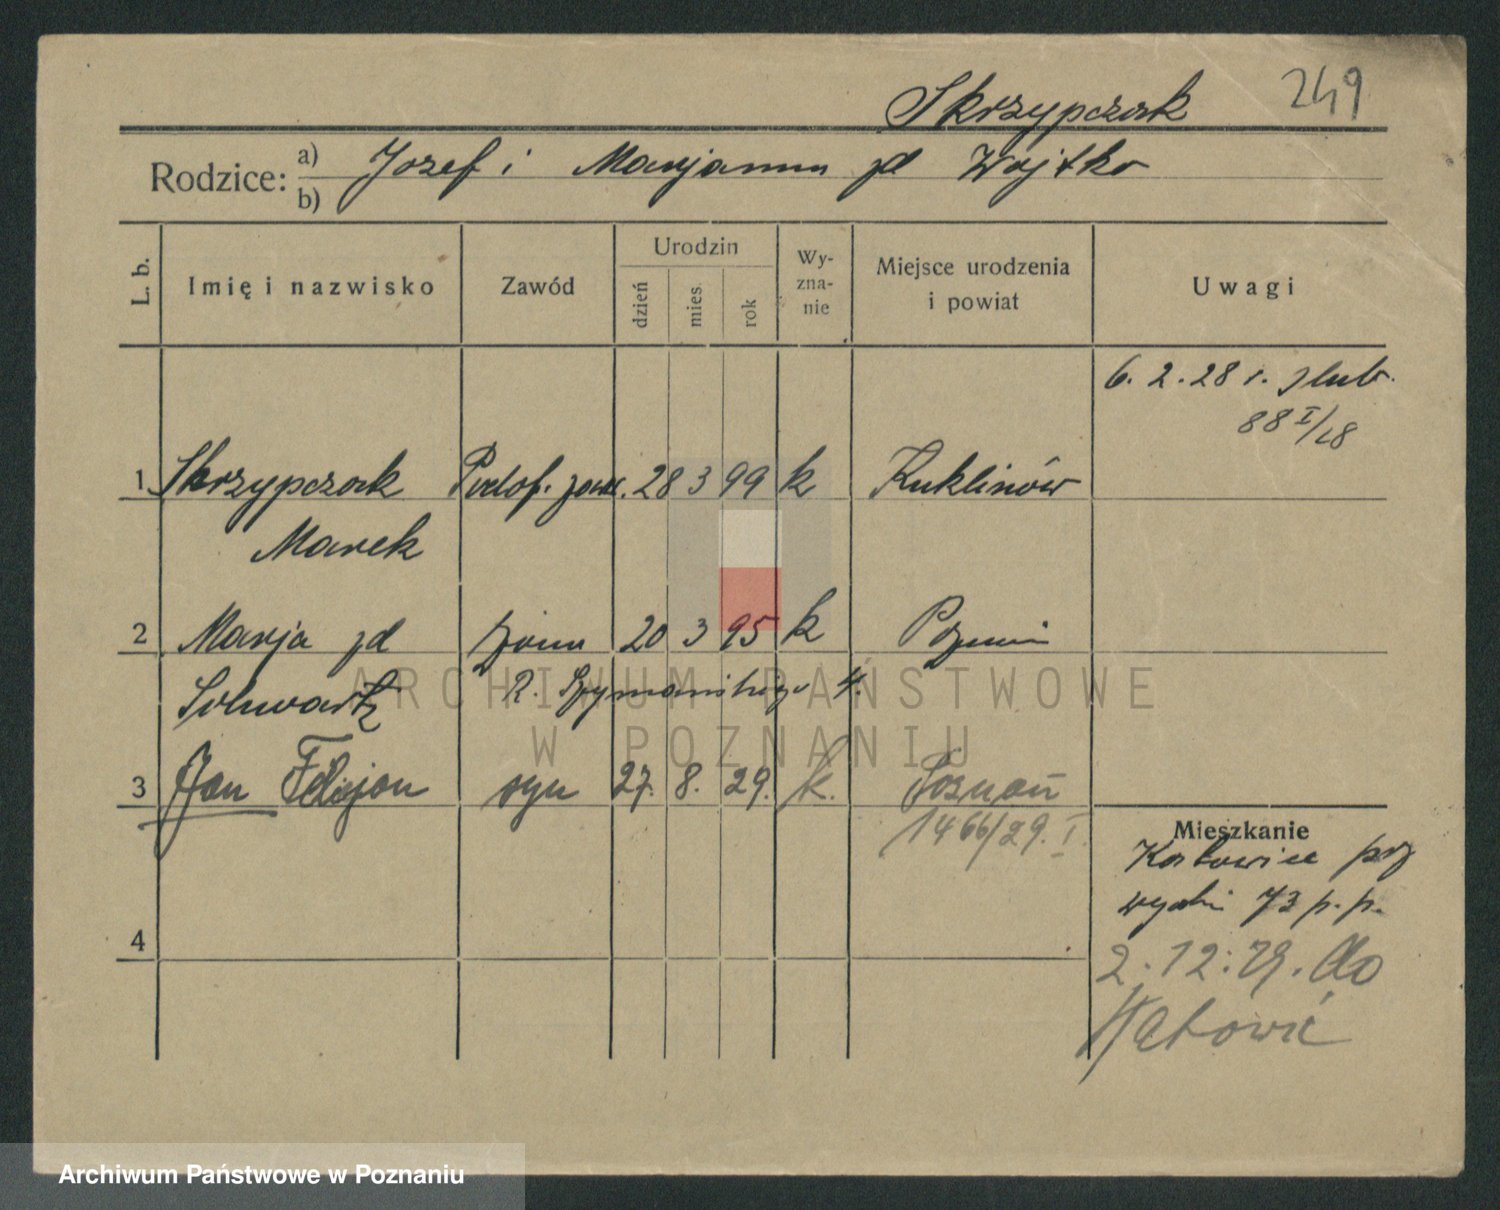 Skrzypczak 249
Rodzice: a) Jozef i Marjanna zd Wojtko
b)
L. b. Imię i nazwisko Zawód Urodzin dzień mies. rok Wyznanie Miejsce urodzenia i powiat Uwagi
6. 2. 28 r. slub.
88 I/28
1 Skrzypczak Podof. zaw. 28 3 99 k Kuklinów
Marek
2 Marja zd żona 20 3 95 k Poznań
Schwartz R. Szymańskiego 4.
3 Jan Felicjan syn 27. 8. 29. k. Poznań
1466/29. I.
Mieszkanie
Katowice przy
73 p. p.
4
2. 12. 29. do
Katowic
ARCHIWUM PAŃSTWOWE
W POZNANIU
Archiwum Państwowe w Poznaniu